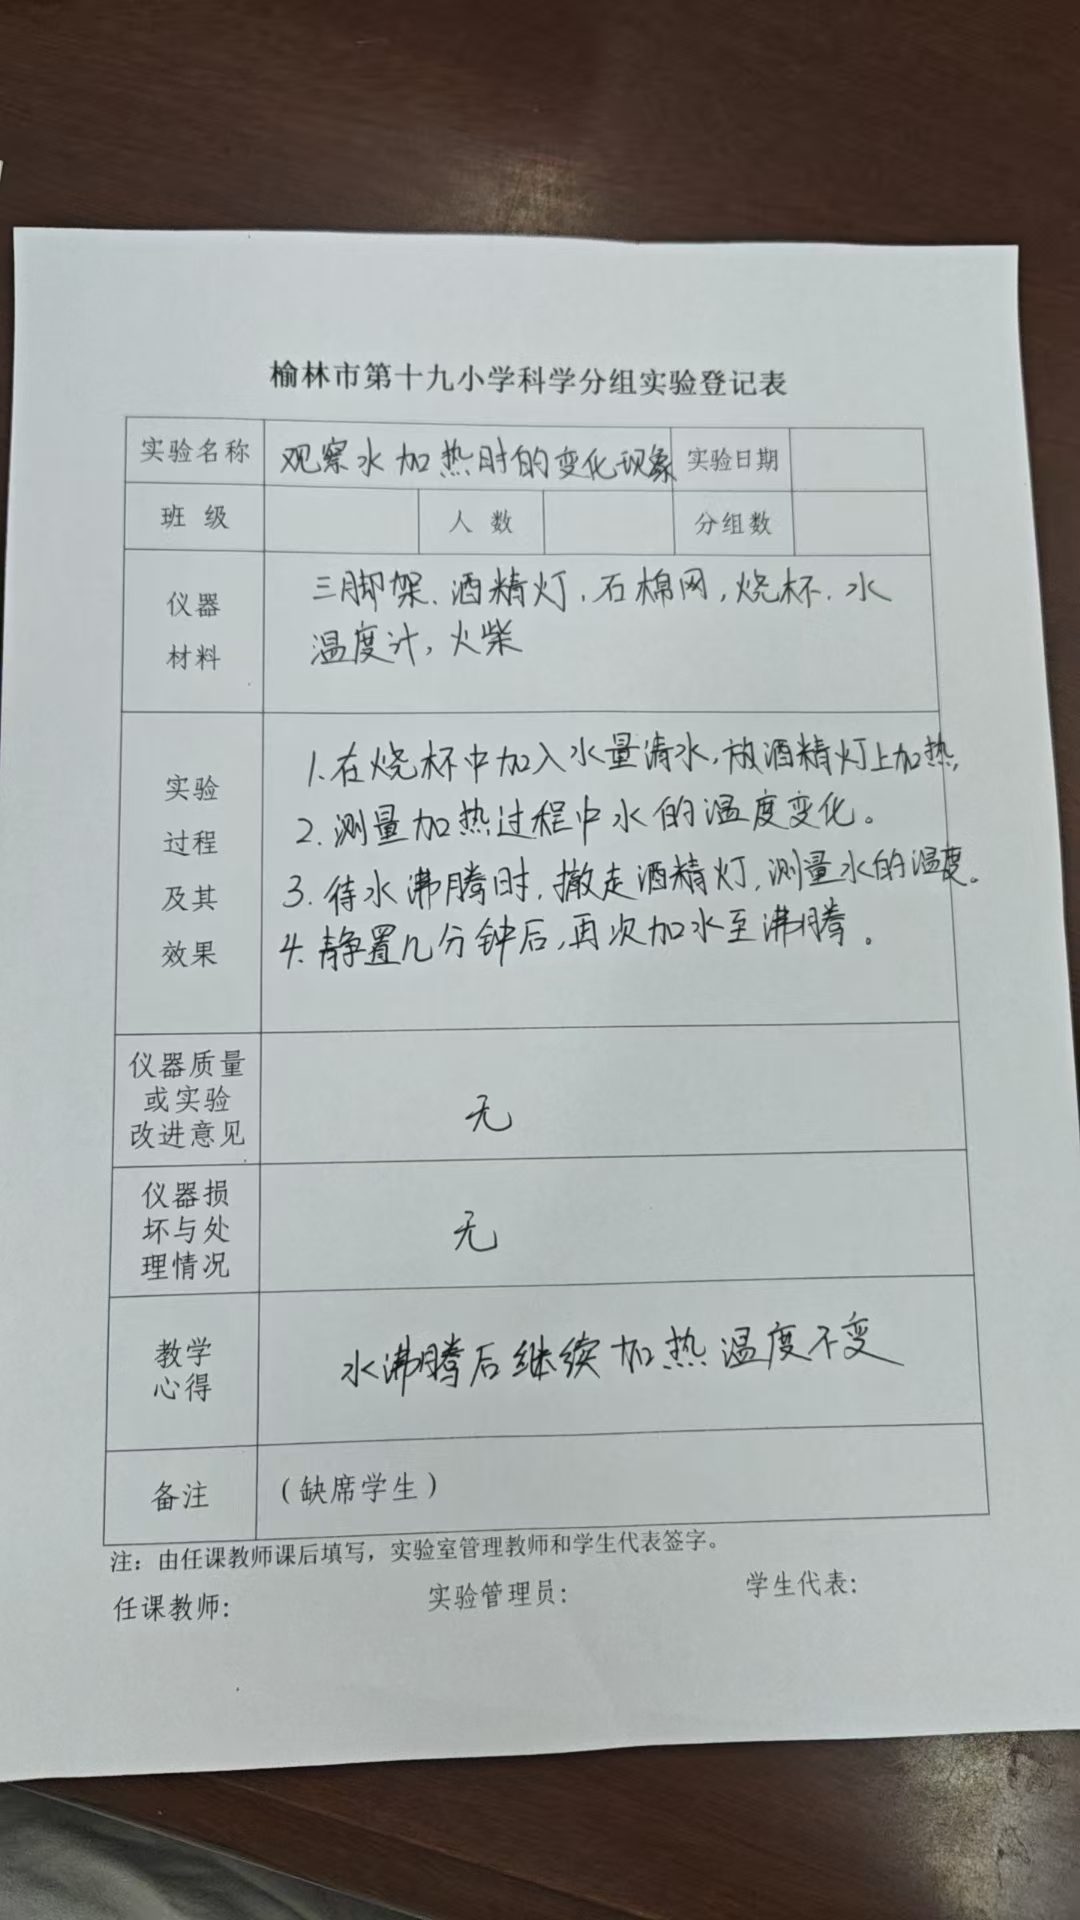 榆林市第十九小学科学分组实验登记表
实验名称 观察水加热时的变化现象 实验日期
班 级 人 数 分组数
仪器
材料
三脚架、酒精灯，石棉网，烧杯、水
温度计，火柴
实验
过程
及其
效果
1.在烧杯中加入水量清水，放酒精灯上加热，
2.测量加热过程中水的温度变化。
3.待水沸腾时，撤走酒精灯，测量水的温度。
4.静置几分钟后，再次加水至沸腾。
仪器质量
或实验
改进意见
无
仪器损
坏与处
理情况
无
教学
心得
水沸腾后继续加热温度不变
备注 （缺席学生）
注：由任课教师课后填写，实验室管理教师和学生代表签字。
任课教师： 实验管理员： 学生代表：